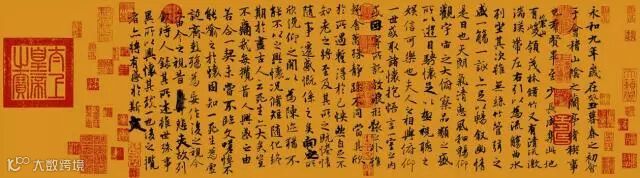 永和九年歲在癸丑暮春之初會
于會稽山陰之蘭亭脩稧事
也羣賢畢至少長咸集此地
有崇山峻領茂林脩竹又有清流激
湍暎帶左右引以為流觴曲水
列坐其次雖無絲竹管弦之
盛一觴一詠亦足以暢敘幽情
是日也天朗氣清惠風和暢仰
觀宇宙之大俯察品類之盛
所以遊目騁懷足以極視聽之
娛信可樂也夫人之相與俯仰
一世或取諸懷抱悟言一室之內
或因寄所託放浪形骸之外雖
趣舍萬殊靜躁不同當其欣
於所遇蹔得於己怏然自足不
知老之將至及其所之既惓情
隨事遷感慨係之矣向之所
欣俛仰之閒以為陳迹猶不
能不以之興懷況脩短隨化終
期於盡古人云死生亦大矣豈
不痛哉每攬昔人興感之由
若合一契未嘗不臨文嗟悼不
能喻之於懷固知一死生為虛
誕齊彭殤為妄作後之視今
亦由今之視昔悲夫故列
敘時人錄其所述雖世殊事
異所以興懷其致一也後之攬
者亦將有感於斯文
太上皇帝之寶
大数跨境